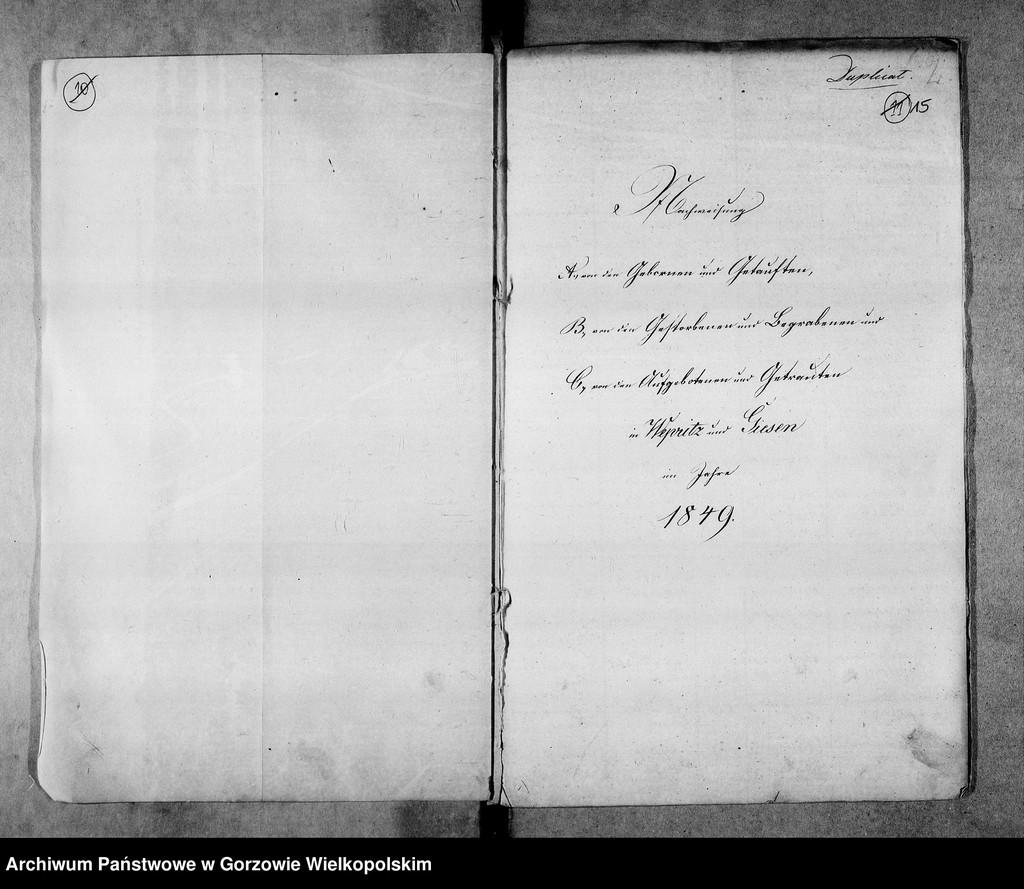 10
Duplicat. 2
11 15
Nachweisung
A, von den Gebornen und Getauften,
B, von den Gestorbenen und Begrabenen und
C, von den Aufgebotenen und Getrauten
in Wepritz und Giesen
im Jahre
1849.
Archiwum Państwowe w Gorzowie Wielkopolskim